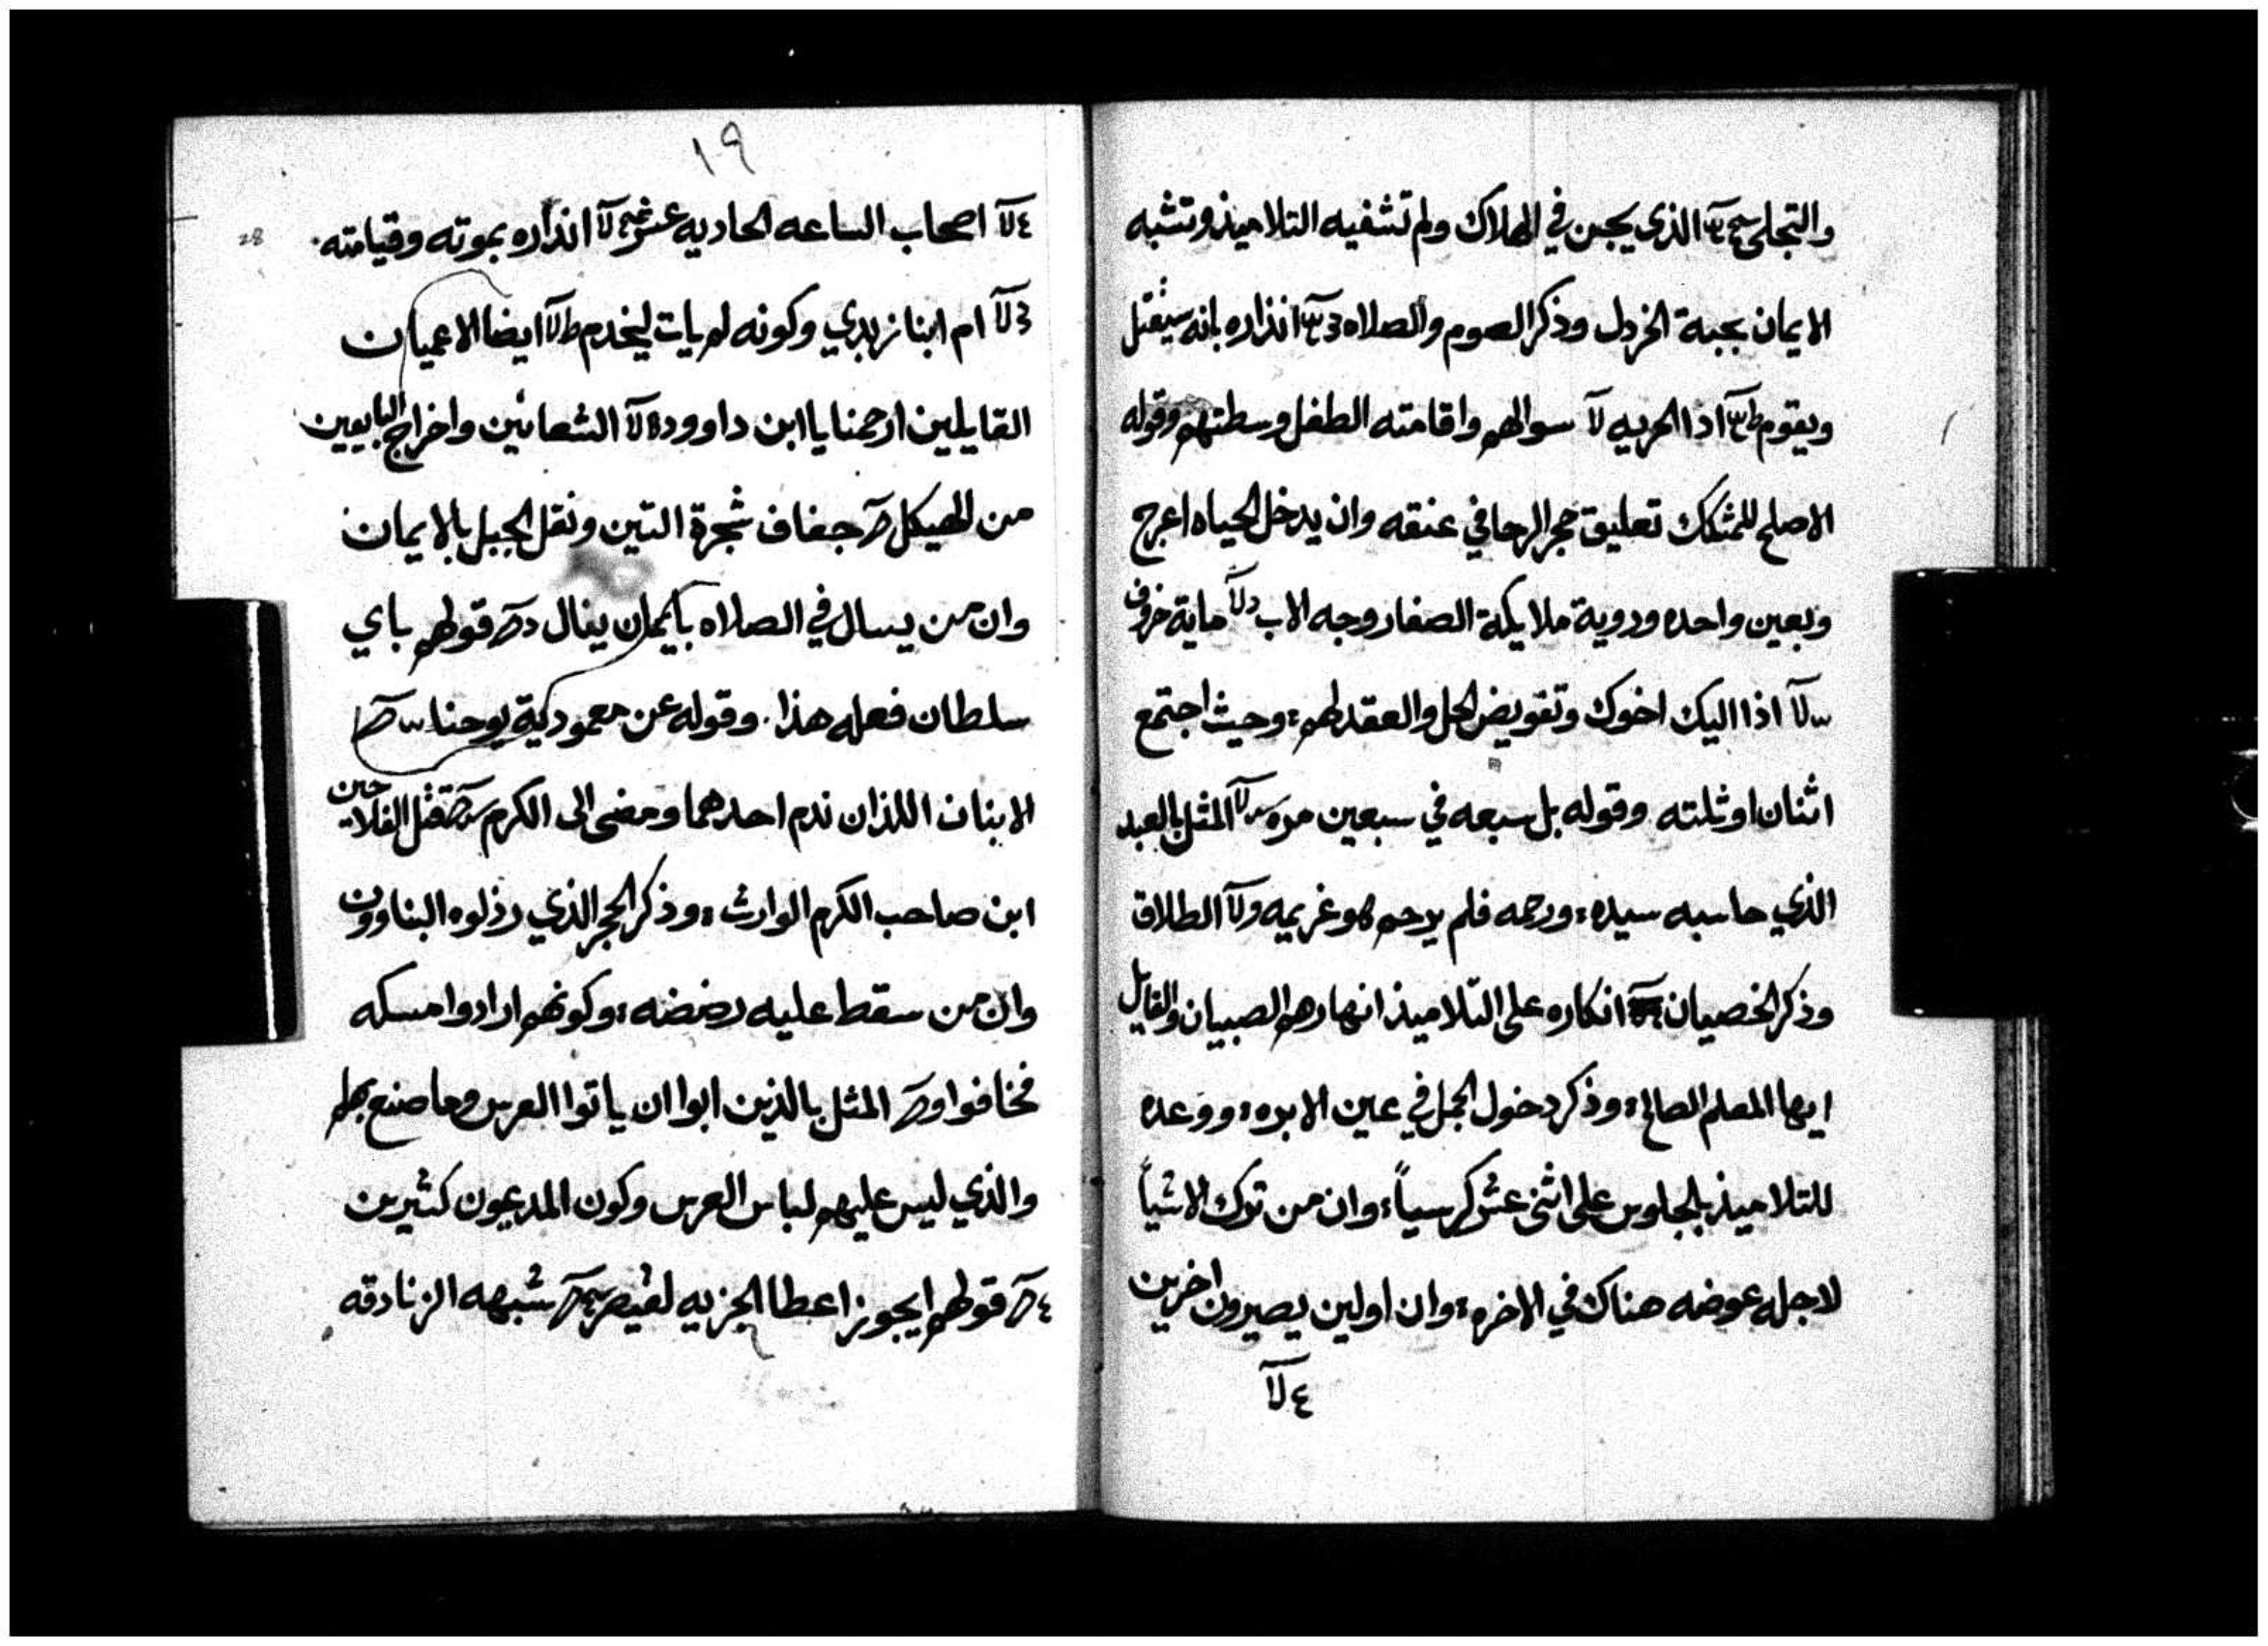 والتجلي الذي يجبن في الهلاك ولم تشفيه التلاميذ وتشبه
الايمان بحبة الخردل وذكر الصوم والصلاه انذاره بانه سيقتل
ويقوم ادا الجزيه لا سوالهم واقامته الطفل وسطهم وقوله
الاصلح للمشكك تعليق حجر الرحا في عنقه وان يدخل الحياه اعرج
وبعين واحده وروية ملايكة الصغار وجه الاب ماية خروف
اذا اليك اخوك وتفويض الحل والعقد لهم وحيث اجتمع
اثنان او ثلته وقوله بل سبعه في سبعين مره المثل بالعبد
الذي حاسبه سيده ورحمه فلم يرحم هو غريمه الطلاق
وذكر الخصيان انكاره على التلاميذ انهارهم الصبيان والقايل
ايها المعلم الصالح وذكر دخول الجمل في عين الابره ووعده
للتلاميذ بالجلوس على اثنى عشر كرسياً وان من ترك الاشياً
لاجله عوضه هناك في الاخره وان اولين يصيرون اخرين
٤ لا
١٩
28
٤ لا اصحاب الساعه الحاديه عشر انذاره بموته وقيامته
لا ام ابنا زبدي وكونه لم يات ليخدم ايضا الاعميان
القايلين ارحمنا يا ابن داوود الشعانين واخراج البايعين
من الهيكل جفاف شجرة التين ونقل الجبل بالايمان
وان من يسال في الصلاه بايمان ينال قولهم باي
سلطان فعله هذا وقوله عن معمودية يوحنا
الابنان اللذان ندم احدهما ومضى الى الكرم قتل الفلاحين
ابن صاحب الكرم الوارث وذكر الحجر الذي رذلوه البناوون
وان من سقط عليه رضضه وكونهم ارادوا مسكه
فخافوا المثل بالذين ابوا ان ياتوا العرس وما صنع بهم
والذي ليس عليهم لباس العرس وكون المدعوون كثيرين
قولهم ايجوز اعطا الجزيه لقيصر شبهه الزنادقه